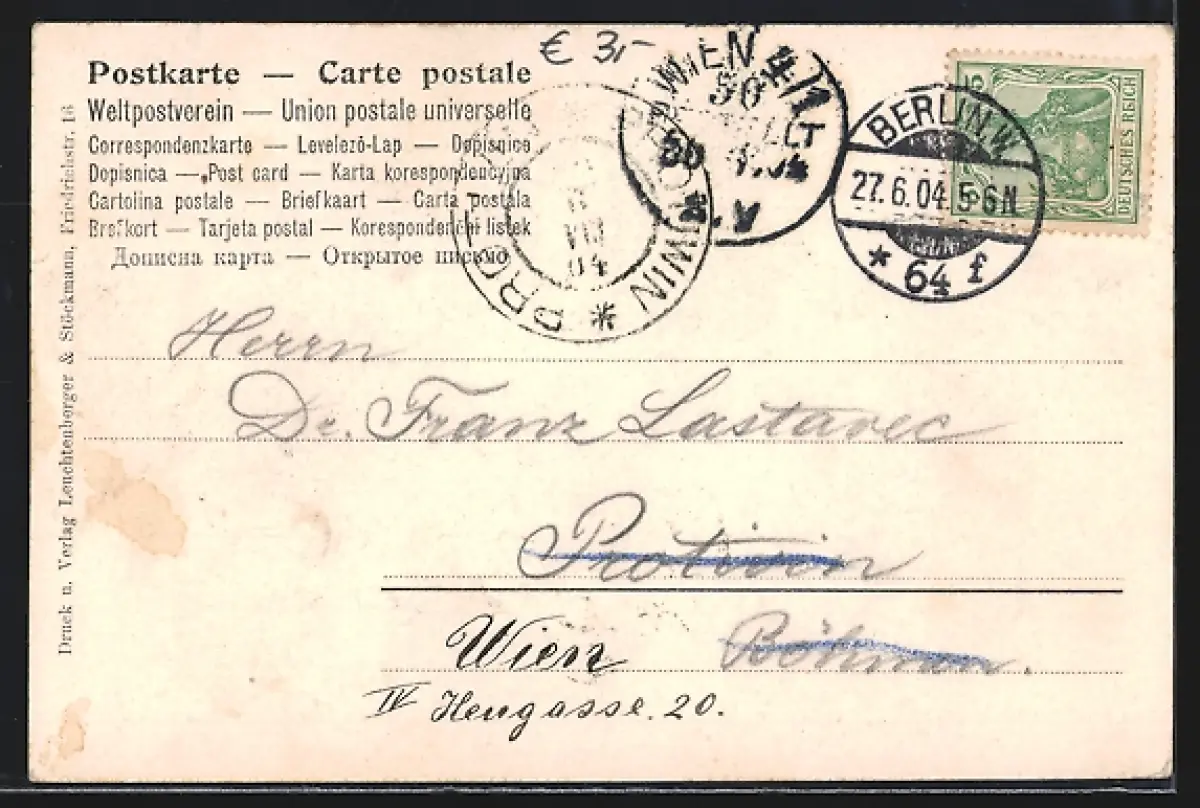 € 3,-
Postkarte — Carte postale
Weltpostverein — Union postale universelle
Correspondenzkarte — Levelező-Lap — Dopisnice
Dopisnica — Post card — Karta korespondencyjna
Cartolina postale — Briefkaart — Carta postala
Brefkort — Tarjeta postal — Korespondenční listek
Дописна карта — Открытое письмо
WIEN 4/1
50
BERLIN.W.
27.6.04. 5-6N
* 64 f
DEUTSCHES REICH
5
PROTIWIN *
VII
04
Herrn
Dr. Franz Lastavec
Protiwin
Wien Böhmen.
IV Heugasse. 20.
Druck u. Verlag Leuchtenberger & Stöckmann, Friedrichstr. 16